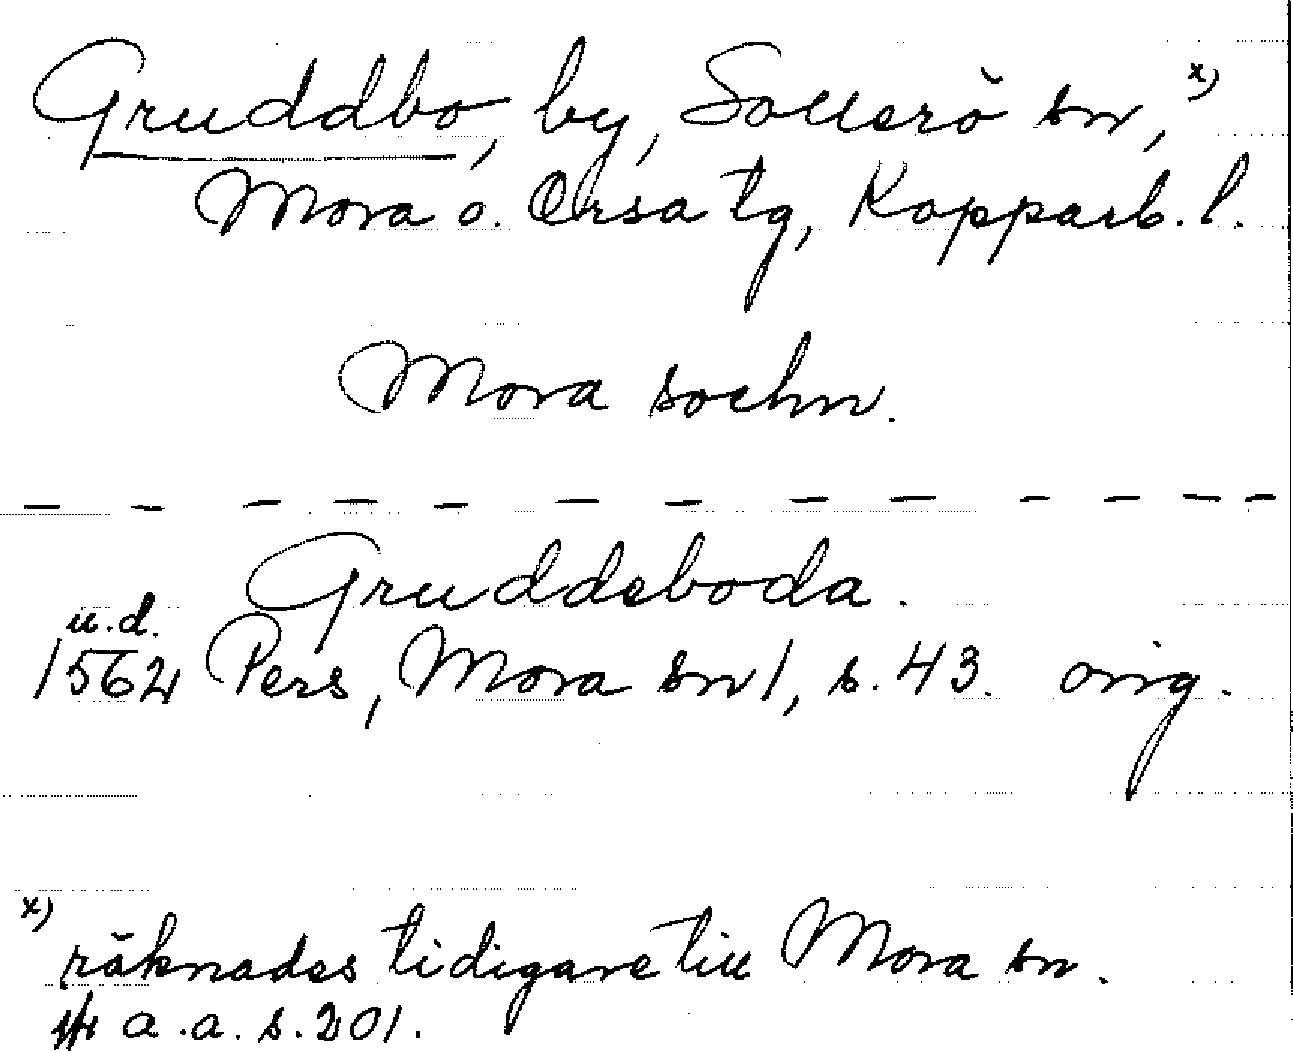 Gruddbo, by, Sollerö sn, x)
Mora o. Orsa tg, Kopparb. l.
Mora sochn.
Gruddeboda.
u.d.
1562 Pers, Mora sn 1, s. 43. orig.
x)
räknades tidigare till Mora sn.
jfr a.a. s. 201.